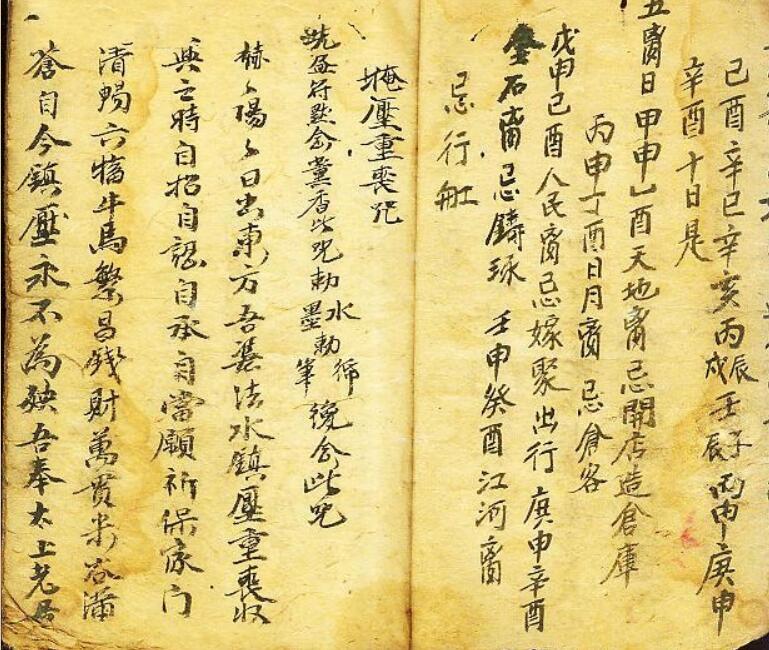 己酉辛巳辛亥丙辰戍壬子丙申庚申
辛酉十日是
五离日甲申乙酉天地离忌開店造倉庫
丙申丁酉日月离忌倉客
戊申己酉人民离忌嫁聚出行庚申辛酉
金石离忌鑄琢壬申癸酉江河离
忌行船
掩壓重喪咒
符默念薰香此咒勅水勅墨勅筆念此咒
赫々陽々日出東方吾法水鎮壓重喪收
與之時自招自認自承自當願祈保家门
清賜六牛馬繁昌錢財萬貫米谷滿
蒼自今鎮壓永不為殃吾奉太上老君